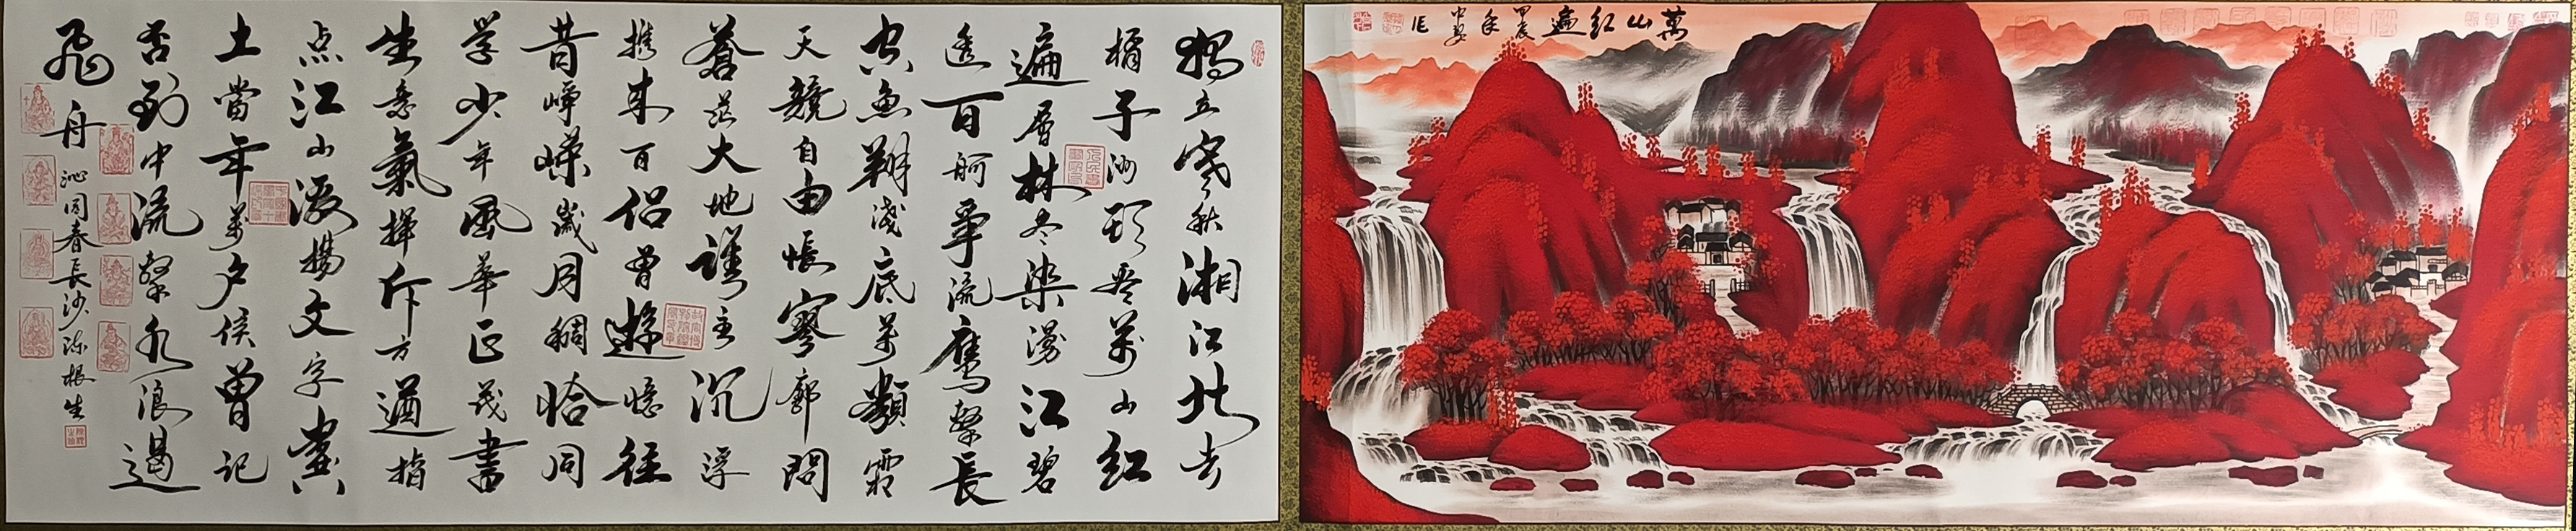 獨立寒秋湘江北去
橘子洲頭看萬山紅
遍層林尽染漫江碧
透百舸爭流鷹擊長
空魚翔淺底萬類霜
天競自由悵寥廓問
蒼茫大地誰主沉浮
携來百侣曾遊憶往
昔崢嶸歲月稠恰同
學少年風華正茂書
生意氣揮斥方遒指
点江山激揚文字糞
土當年萬户侯曾記
否到中流擊水浪遏
飛舟
沁园春長沙陈根生
萬山红遍
甲辰年
作